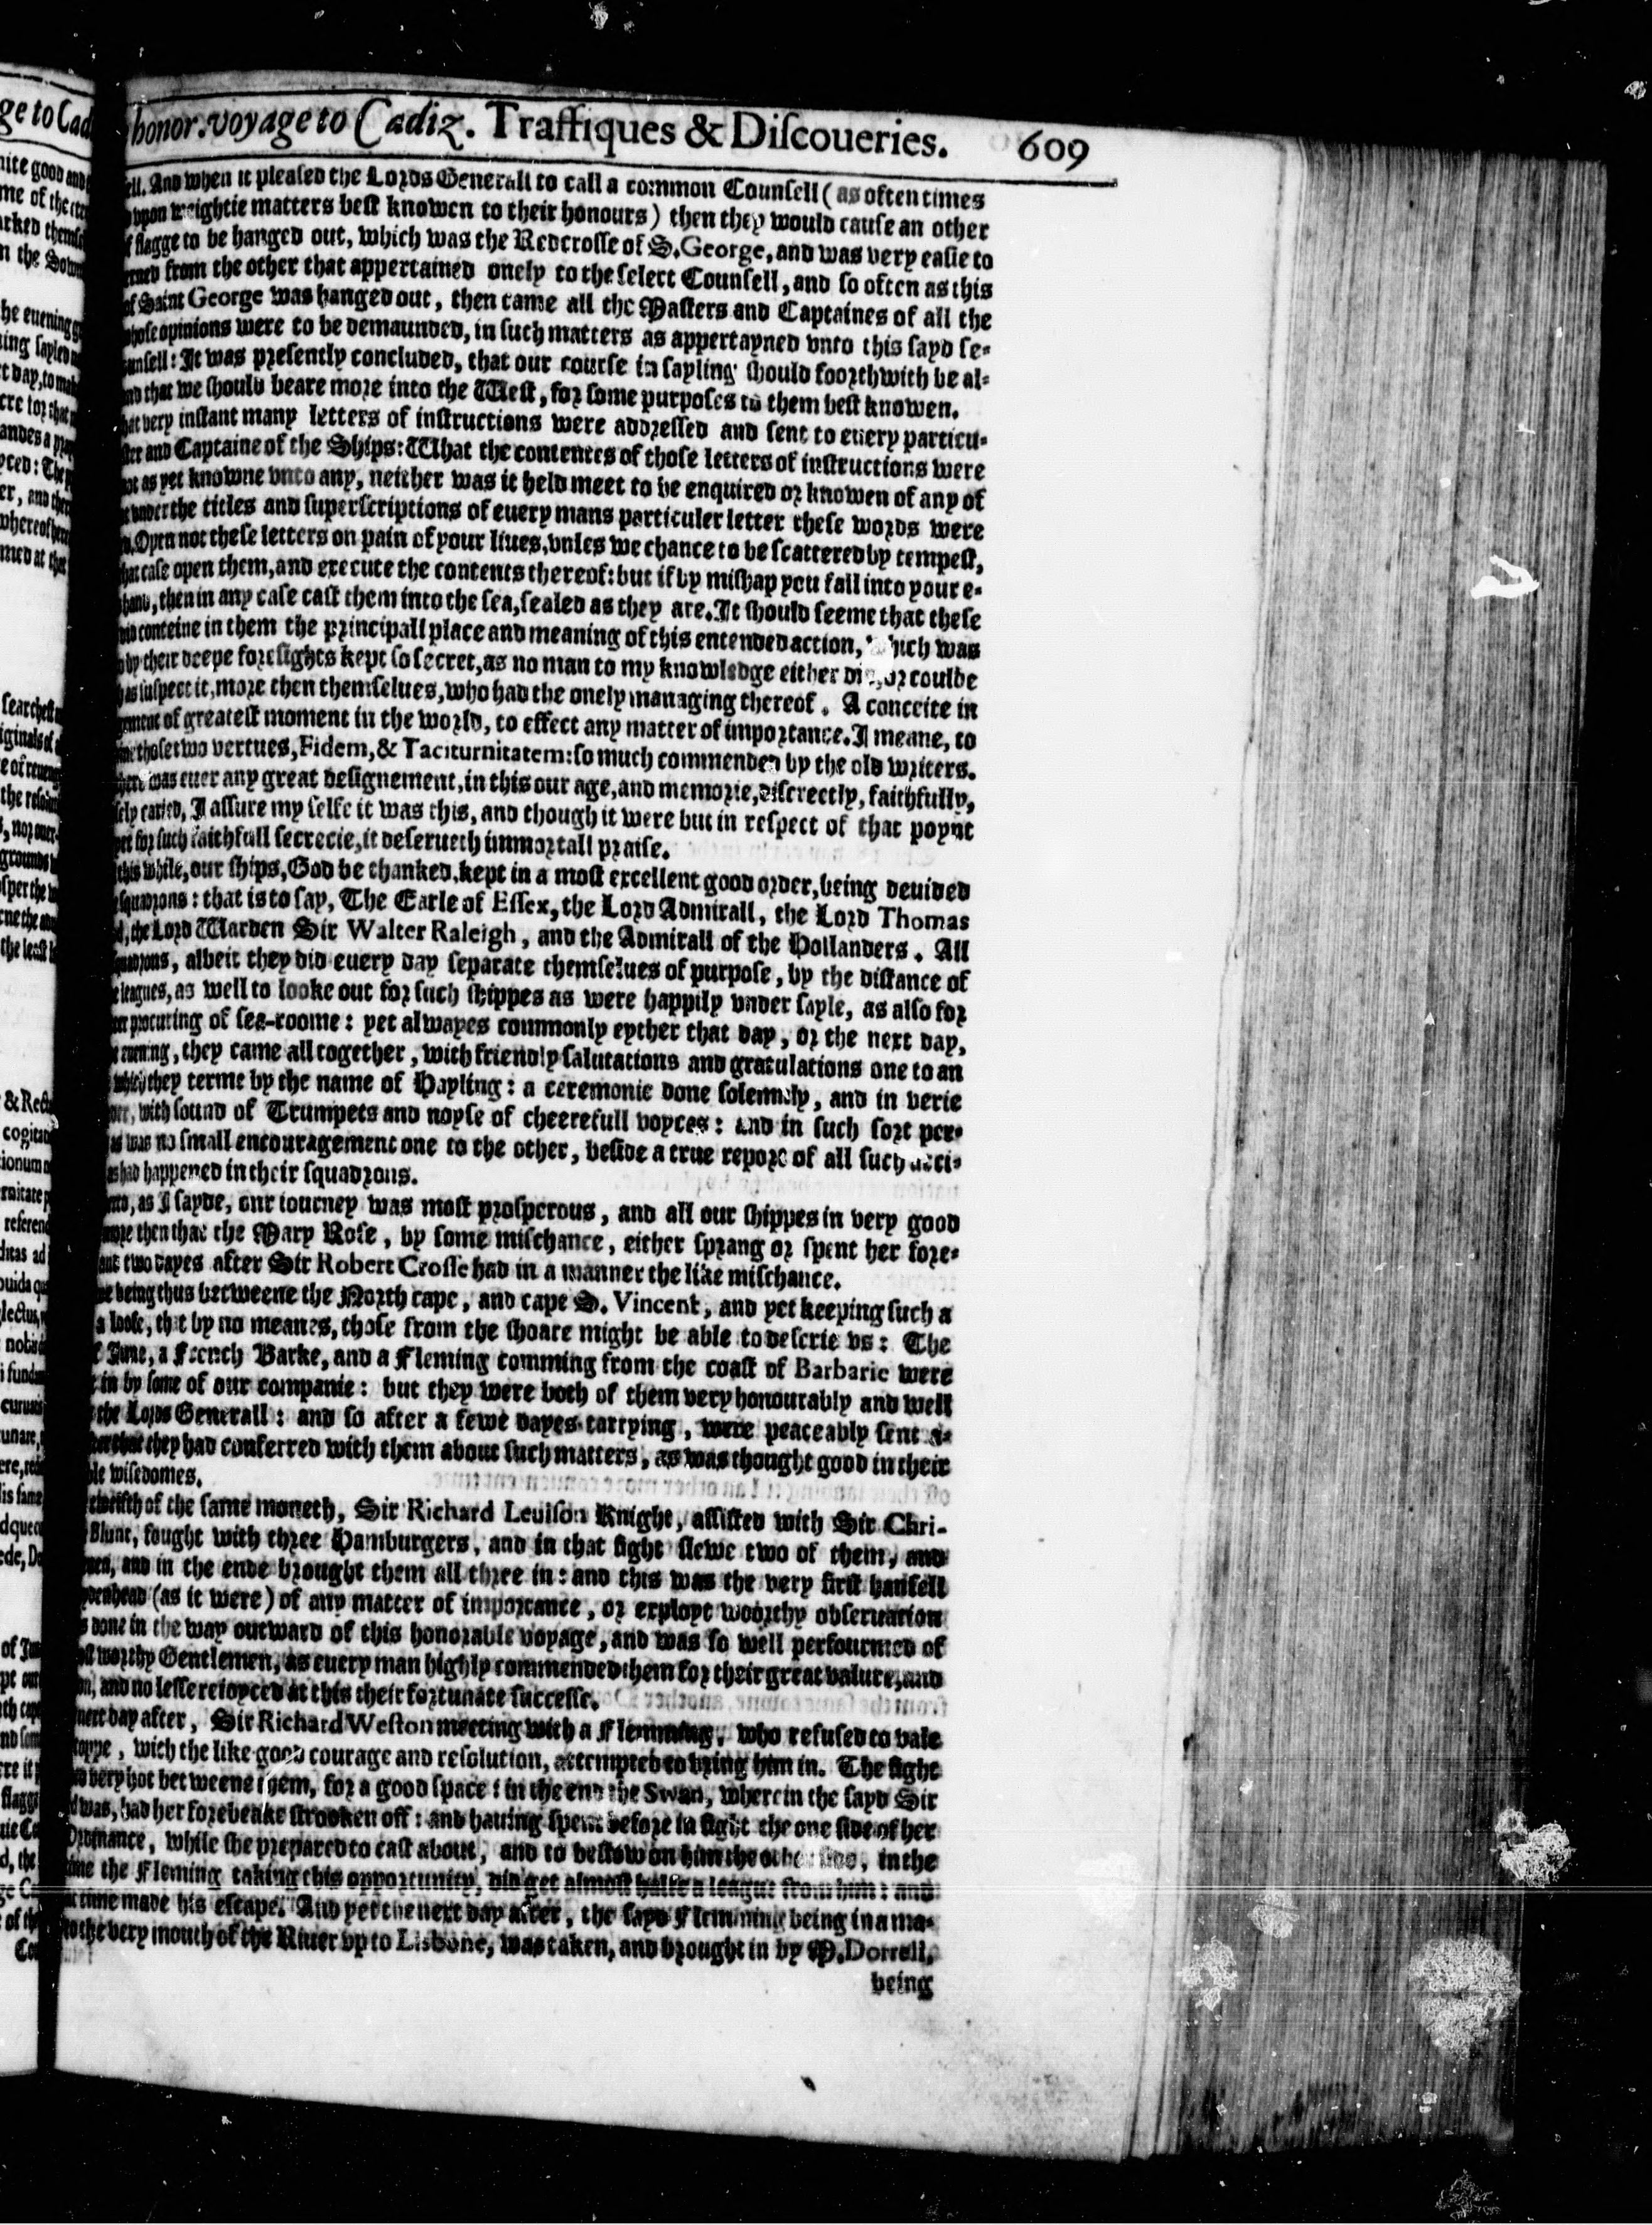 honor.voyage to Cadiz. Traffiques & Diſcoueries. 609
ell. And when it pleaſed the Lords Generall to call a common Counſell (as often times
vpon weightie matters beſt knowen to their honours) then they would cauſe an other
flagge to be hanged out, which was the Redcroſſe of S. George, and was very eaſie to
from the other that appertained onely to the ſelect Counſell, and ſo often as this
of Saint George was hanged out, then came all the Maſters and Captaines of all the
opinions were to be demaunded, in ſuch matters as appertayned vnto this ſayd ſe-
unſell: It was preſently concluded, that our courſe in ſayling ſhould foorthwith be al-
that we ſhould beare more into the Weſt, for ſome purpoſes to them beſt knowen.
very inſtant many letters of inſtructions were addreſſed and ſent to euery particu-
and Captaine of the Ships: What the contentes of thoſe letters of inſtructions were
as yet knowne vnto any, neither was it held meet to be enquired or knowen of any of
vnder the titles and ſuperſcriptions of euery mans particuler letter theſe words were
Open not theſe letters on pain of your liues, vnles we chance to be ſcattered by tempeſt,
caſe open them, and execute the contents thereof: but if by miſhap you fall into your e-
hand, then in any caſe caſt them into the ſea, ſealed as they are. It ſhould ſeeme that theſe
did conteine in them the principall place and meaning of this entended action, which was
by their deepe foreſights kept ſo ſecret, as no man to my knowledge either did, or coulde
as ſuſpect it, more then themſelues, who had the onely managing thereof. A conceite in
of greateſt moment in the world, to effect any matter of importance. I meane, to
thoſe two vertues, Fidem, & Taciturnitatem: ſo much commended by the old writers.
was euer any great deſignement, in this our age, and memorie, diſcreetly, faithfully,
caried, I aſſure my ſelfe it was this, and though it were but in reſpect of that poynt
for ſuch faithfull ſecrecie, it deſerueth immortall praiſe.
this while, our ſhips, God be thanked, kept in a moſt excellent good order, being deuided
ſquadrons: that is to ſay, The Earle of Eſſex, the Lord Admirall, the Lord Thomas
the Lord Warden Sir Walter Raleigh, and the Admirall of the Hollanders. All
albeit they did euery day ſeparate themſelues of purpoſe, by the diſtance of
leagues, as well to looke out for ſuch ſhippes as were happily vnder ſayle, as alſo for
procuring of ſea-roome: yet alwayes commonly eyther that day, or the next day,
euening, they came all together, with friendly ſalutations and gratulations one to an
which they terme by the name of Hayling: a ceremonie done ſolemnly, and in verie
with ſound of Trumpets and noyſe of cheerefull voyces: and in ſuch ſort per-
as was no ſmall encouragement one to the other, beſide a true report of all ſuch acci-
as had happened in their ſquadrons.
as I ſayde, our iourney was moſt proſperous, and all our ſhippes in very good
more then that the Mary Roſe, by ſome miſchance, either ſprang or ſpent her fore-
two dayes after Sir Robert Croſſe had in a manner the like miſchance.
being thus betweene the North cape, and cape S. Vincent, and yet keeping ſuch a
a looſe, that by no meanes, thoſe from the ſhoare might be able to deſcrie vs: The
Iune, a French Barke, and a Fleming comming from the coaſt of Barbarie were
in by ſome of our companie: but they were both of them very honourably and well
the Lords Generall: and ſo after a fewe dayes tarrying, were peaceably ſent a-
that they had conferred with them about ſuch matters, as was thought good in their
wiſedomes.
of the ſame moneth, Sir Richard Leuiſon Knight, aſſiſted with Sir Chri-
Blunt, fought with three Hamburgers, and in that fight ſlewe two of them, and
and in the ende brought them all three in: and this was the very firſt hanſell
(as it were) of any matter of importance, or exployt woorthy obſeruation
done in the way outward of this honorable voyage, and was ſo well perfourmed of
worthy Gentlemen, as euery man highly commended them for their great valure, and
and no leſſe reioyced at this their fortunate ſucceſſe.
next day after, Sir Richard Weſton meeting with a Flemming, who refuſed to vale
toppe, with the like good courage and reſolution, attempted to bring him in. The fight
very hot betweene them, for a good ſpace: in the end the Swan, wherein the ſayd Sir
was, had her forebeake ſtrooken off: and hauing ſpent before in fight the one ſide of her
Ordinance, while ſhe prepared to caſt about, and to beſtow on him the other ſide, in the
the Fleming taking this opportunity, did get almoſt halfe a league from him: and
time made his eſcape. And yet the next day after, the ſayd Flemming being in a ma-
to the very mouth of the Riuer vp to Lisbone, was taken, and brought in by M. Dorrell,
being